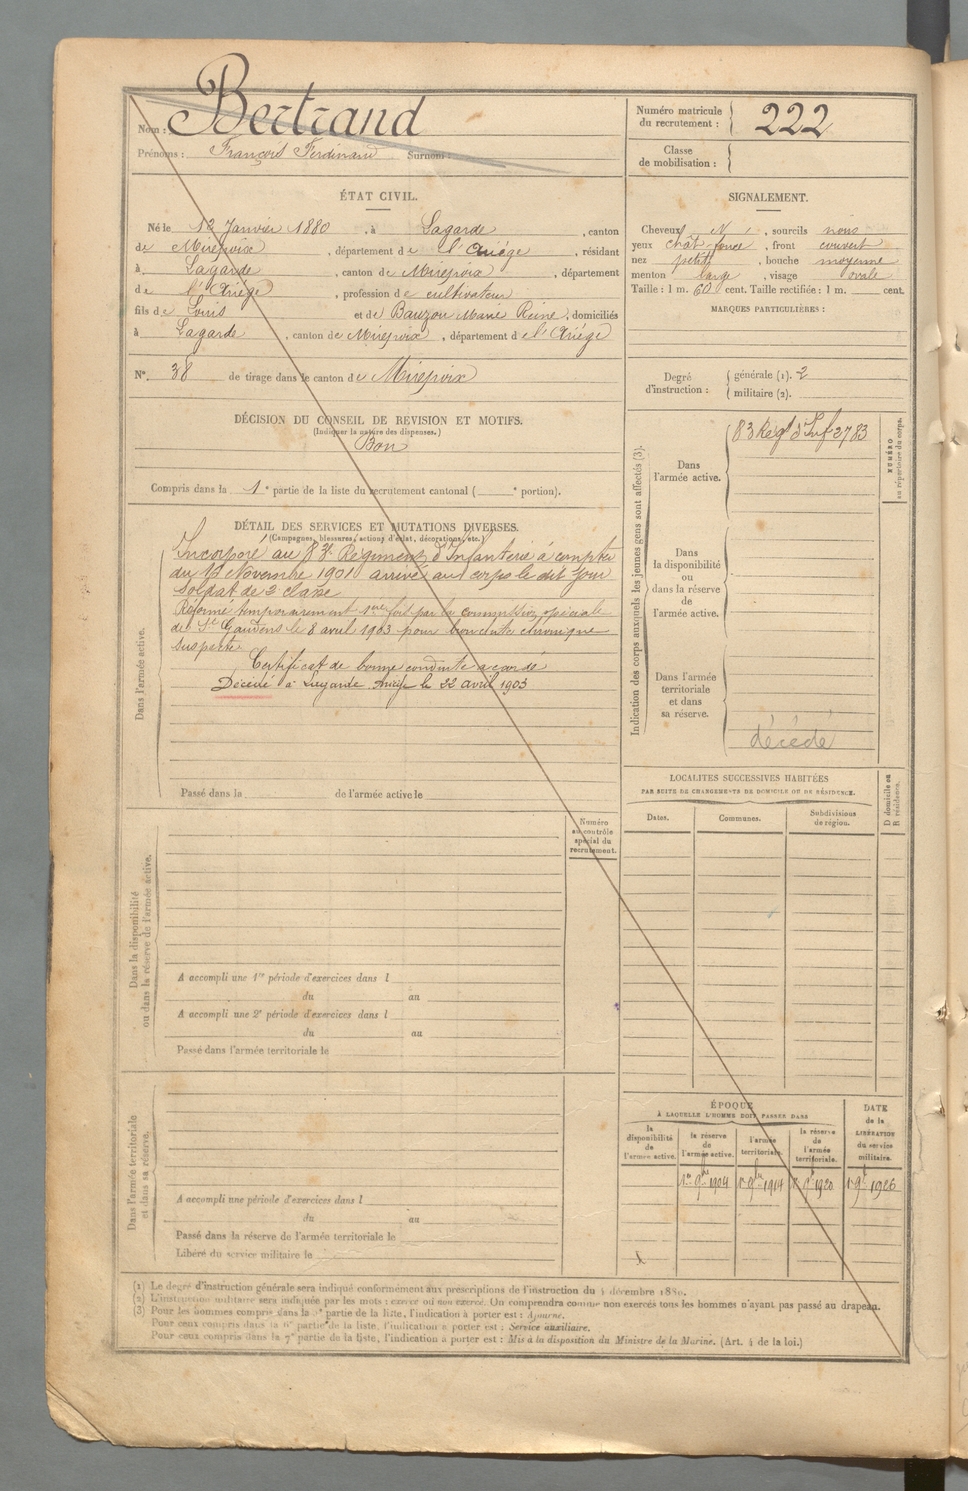 Nom : Bertrand
Prénoms : François Ferdinand Surnom :
Numéro matricule du recrutement : 222
Classe de mobilisation :
ÉTAT CIVIL.
Né le 12 Janvier 1880, à Lagarde, canton
de Mirepoix, département de l'Ariège, résidant
à Lagarde, canton de Mirepoix, département
de l'Ariège, profession de cultivateur
fils de Louis et de Bauzou Marie Reine, domiciliés
à Lagarde, canton de Mirepoix, département de l'Ariège
N° 38 de tirage dans le canton de Mirepoix
SIGNALEMENT.
Cheveux N, sourcils noirs
yeux chât-foncé, front couvert
nez petit, bouche moyenne
menton large, visage ovale
Taille : 1 m. 60 cent. Taille rectifiée : 1 m. cent.
MARQUES PARTICULIÈRES :
Degré d'instruction :
générale (1). 2
militaire (2).
DÉCISION DU CONSEIL DE REVISION ET MOTIFS.
(Indiquer la nature des dispenses.)
Bon
Compris dans la 1e partie de la liste du recrutement cantonal ( e portion).
DÉTAIL DES SERVICES ET MUTATIONS DIVERSES.
(Campagnes, blessures, actions d'éclat, décorations, etc.)
Dans l'armée active.
Incorporé au 83e Régiment d'Infanterie à compter
du 14 Novembre 1901 arrivé au corps le dit jour
Soldat de 2 classe
Réformé temporairement 1ère fois par la commission spéciale
de St Gaudens le 8 avril 1903 pour bronchite chronique
suspecte
Certificat de bonne conduite accordé
Décédé à Lagarde Ariège le 22 avril 1903
Passé dans la de l'armée active le
Indication des corps auxquels les jeunes gens sont affectés (3).
NUMÉRO au répertoire du corps.
Dans l'armée active.
83 Régt d'Inf 2783
Dans la disponibilité ou dans la réserve de l'armée active.
Dans l'armée territoriale et dans sa réserve.
décédé
LOCALITÉS SUCCESSIVES HABITÉES
PAR SUITE DE CHANGEMENTS DE DOMICILE OU DE RÉSIDENCE.
Dates. Communes. Subdivisions de région.
D domicile ou R résidence.
Numéro au contrôle spécial du recrutement.
Dans la disponibilité ou dans la réserve de l'armée active.
A accompli une 1re période d'exercices dans l
du au
A accompli une 2e période d'exercices dans l
du au
Passé dans l'armée territoriale le
Dans l'armée territoriale et dans sa réserve.
A accompli une période d'exercices dans l
du au
Passé dans la réserve de l'armée territoriale le
Libéré du service militaire le
ÉPOQUE
À LAQUELLE L'HOMME DOIT PASSER DANS
la disponibilité de l'armée active.
la réserve de l'armée active.
l'armée territoriale.
la réserve de l'armée territoriale.
DATE de la LIBÉRATION du service militaire.
1er 9bre 1904 1er 9bre 1914 1er 9bre 1920 1er 9bre 1926
(1) Le degré d'instruction générale sera indiqué conformément aux prescriptions de l'instruction du 4 décembre 1889.
(2) L'instruction militaire sera indiquée par les mots : exercé ou non exercé. On comprendra comme non exercés tous les hommes n'ayant pas passé au drapeau.
(3) Pour les hommes compris dans la 5e partie de la liste, l'indication à porter est : Ajourné.
Pour ceux compris dans la 6e partie de la liste, l'indication à porter est : Service auxiliaire.
Pour ceux compris dans la 7e partie de la liste, l'indication à porter est : Mis à la disposition du Ministre de la Marine. (Art. 4 de la loi.)